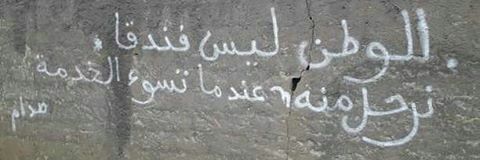 الوطن ليس فندقا
نرحل منه عندما تسوء الخدمة
صدام